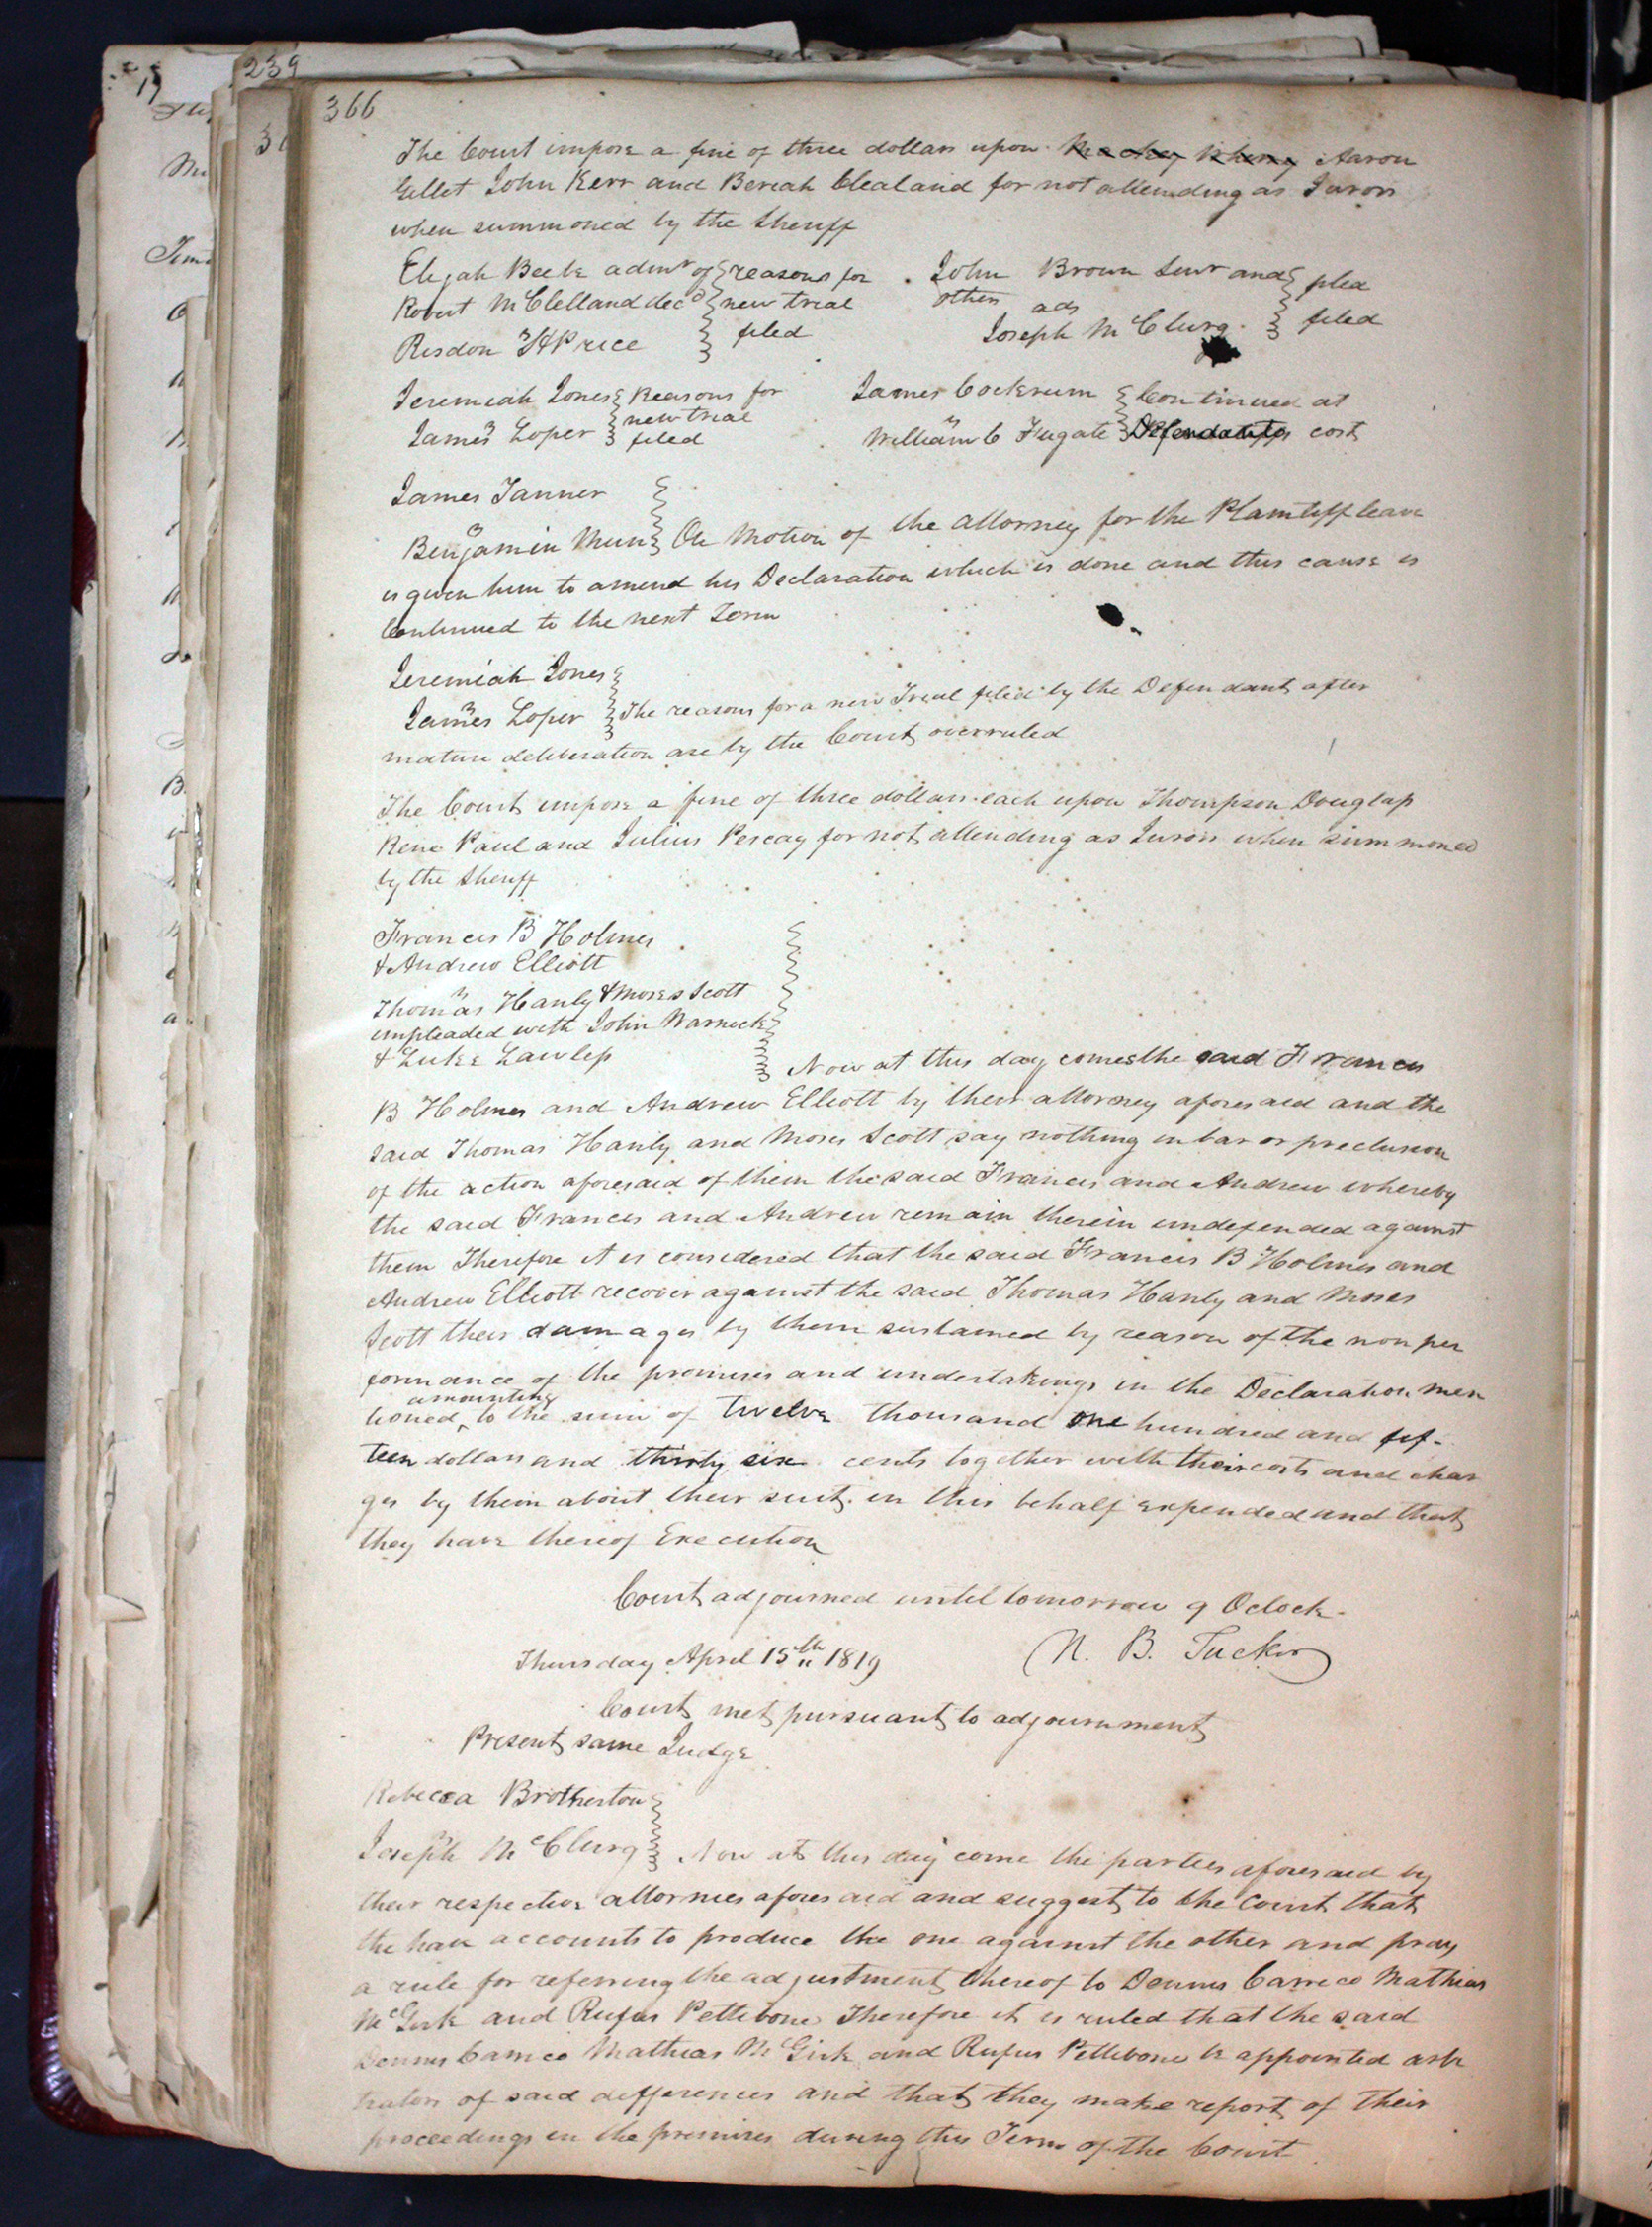 239
366
The Court impose a fine of three dollars upon Aaron
Gillet John Kerr and Beriah Clealand for not attending as Jurors
when summoned by the Sheriff
Elijah Beebe admr of } reasons for
Robert McClelland decd } new trial
vs } filed
Risdon H Price
John Brown Senr and } plea
others ads } filed
Joseph McClurg
Jeremiah Jones } Reasons for
vs } new trial
James Loper } filed
James Cockrum } Continued at
vs
William C Fugate } cost
James Tanner }
vs
Benjamin Mun } On Motion of the attorney for the Plaintiff leave
is given him to amend his Declaration which is done and this cause is
Continued to the next Term
Jeremiah Jones }
vs
James Loper } The reasons for a new Trial filed by the Defendant after
mature deliberation are by the Court overruled
The Court impose a fine of three dollars each upon Thompson Douglass
Rene Paul and Julius Pescay for not attending as Jurors when summoned
by the Sheriff
Francis B Holmes
& Andrew Elliott
vs
Thomas Hanly & Moses Scott
impleaded with John Warnock
& Luke Lawless } Now at this day comes the said Francis
B Holmes and Andrew Elliott by their attorney aforesaid and the
said Thomas Hanly and Moses Scott say nothing in bar or preclusion
of the action aforesaid of them the said Francis and Andrew whereby
the said Francis and Andrew remain therein undefended against
them Therefore it is considered that the said Francis B Holmes and
Andrew Elliott recover against the said Thomas Hanly and Moses
Scott their damages by them sustained by reason of the non per
formance of the promises and undertakings in the Declaration men
tioned ^ amounting to the sum of twelve thousand one hundred and fif-
teen dollars and thirty six cents together with their costs and char
ges by them about their suit in this behalf expended and that
they have thereof Execution
Court adjourned until tomorrow 9 Oclock-
N. B. Tucker
Thursday April 15th 1819
Court met pursuant to adjournment
Present same Judge
Rebecca Brotherton }
vs
Joseph McClurg } Now at this day come the parties aforesaid by
their respective attornies aforesaid and suggest to the Court that
the have accounts to produce the one against the other and pray
a rule for referring the adjustment thereof to Dennis Carrico Mathias
McGirk and Rufus Pettibone Therefore it is ruled that the said
Dennis Carrico Mathias McGirk and Rufus Pettibone be appointed arbi
trators of said differences and that they make report of their
proceedings in the premises during this Term of the Court